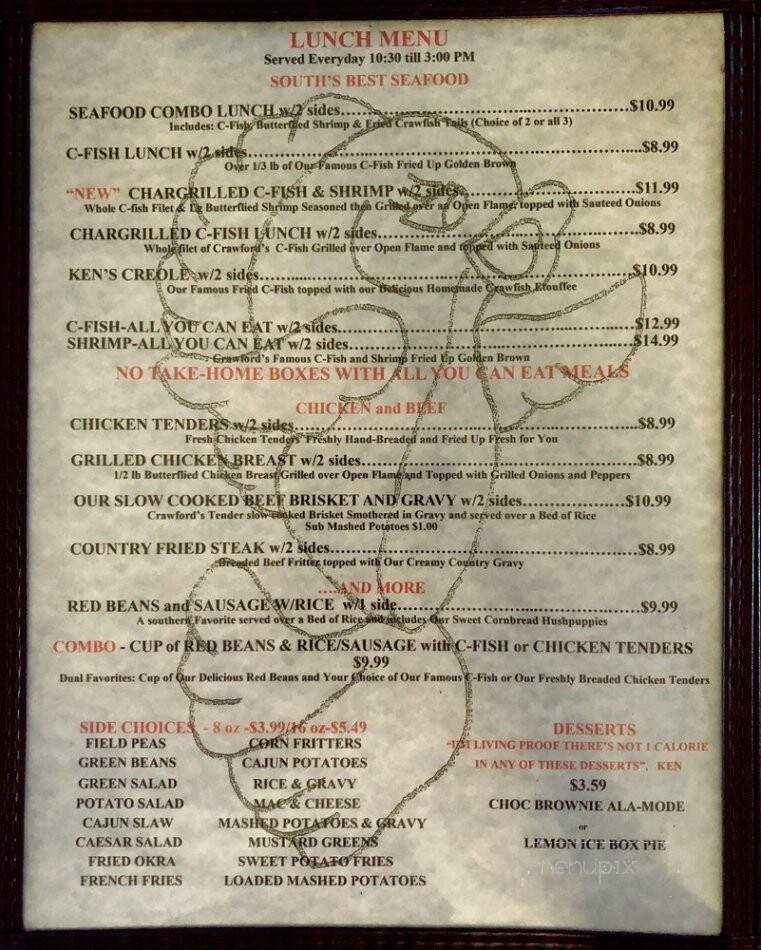 LUNCH MENU
Served Everyday 10:30 till 3:00 PM
SOUTH'S BEST SEAFOOD
SEAFOOD COMBO LUNCH w/2 sides...$10.99
Includes: C-Fish, Butterflied Shrimp & Fried Crawfish Tails (Choice of 2 or all 3)
C-FISH LUNCH w/2 sides...$8.99
Over 1/3 lb of Our Famous C-Fish Fried Up Golden Brown
"NEW" CHARGRILLED C-FISH & SHRIMP w/2 sides...$11.99
Whole C-fish Filet & Lg Butterflied Shrimp Seasoned then Grilled over an Open Flame, topped with Sauteed Onions
CHARGRILLED C-FISH LUNCH w/2 sides...$8.99
Whole filet of Crawford's C-Fish Grilled over Open Flame and topped with Sauteed Onions
KEN'S CREOLE w/2 sides...$10.99
Our Famous Fried C-Fish topped with our Delicious Homemade Crawfish Etouffee
C-FISH-ALL YOU CAN EAT w/2 sides...$12.99
SHRIMP-ALL YOU CAN EAT w/2 sides...$14.99
Crawford's Famous C-Fish and Shrimp Fried Up Golden Brown
NO TAKE-HOME BOXES WITH ALL YOU CAN EAT MEALS
CHICKEN and BEEF
CHICKEN TENDERS w/2 sides...$8.99
Fresh Chicken Tenders Freshly Hand-Breaded and Fried Up Fresh for You
GRILLED CHICKEN BREAST w/2 sides...$8.99
1/2 lb Butterflied Chicken Breast Grilled over Open Flame and Topped with Grilled Onions and Peppers
OUR SLOW COOKED BEEF BRISKET AND GRAVY w/2 sides...$10.99
Crawford's Tender slow cooked Brisket Smothered in Gravy and served over a Bed of Rice
Sub Mashed Potatoes $1.00
COUNTRY FRIED STEAK w/2 sides...$8.99
Breaded Beef Fritter topped with Our Creamy Country Gravy
....AND MORE
RED BEANS and SAUSAGE W/RICE w/1 side...$9.99
A southern Favorite served over a Bed of Rice and includes Our Sweet Cornbread Hushpuppies
COMBO - CUP of RED BEANS & RICE/SAUSAGE with C-FISH or CHICKEN TENDERS
$9.99
Dual Favorites: Cup of Our Delicious Red Beans and Your Choice of Our Famous C-Fish or Our Freshly Breaded Chicken Tenders
SIDE CHOICES - 8 oz -$3.99/16 oz-$5.49
FIELD PEAS
GREEN BEANS
GREEN SALAD
POTATO SALAD
CAJUN SLAW
CAESAR SALAD
FRIED OKRA
FRENCH FRIES
CORN FRITTERS
CAJUN POTATOES
RICE & GRAVY
MAC & CHEESE
MASHED POTATOES & GRAVY
MUSTARD GREENS
SWEET POTATO FRIES
LOADED MASHED POTATOES
DESSERTS
"I'M LIVING PROOF THERE'S NOT 1 CALORIE
IN ANY OF THESE DESSERTS", KEN
$3.59
CHOC BROWNIE ALA-MODE
or
LEMON ICE BOX PIE
menupix